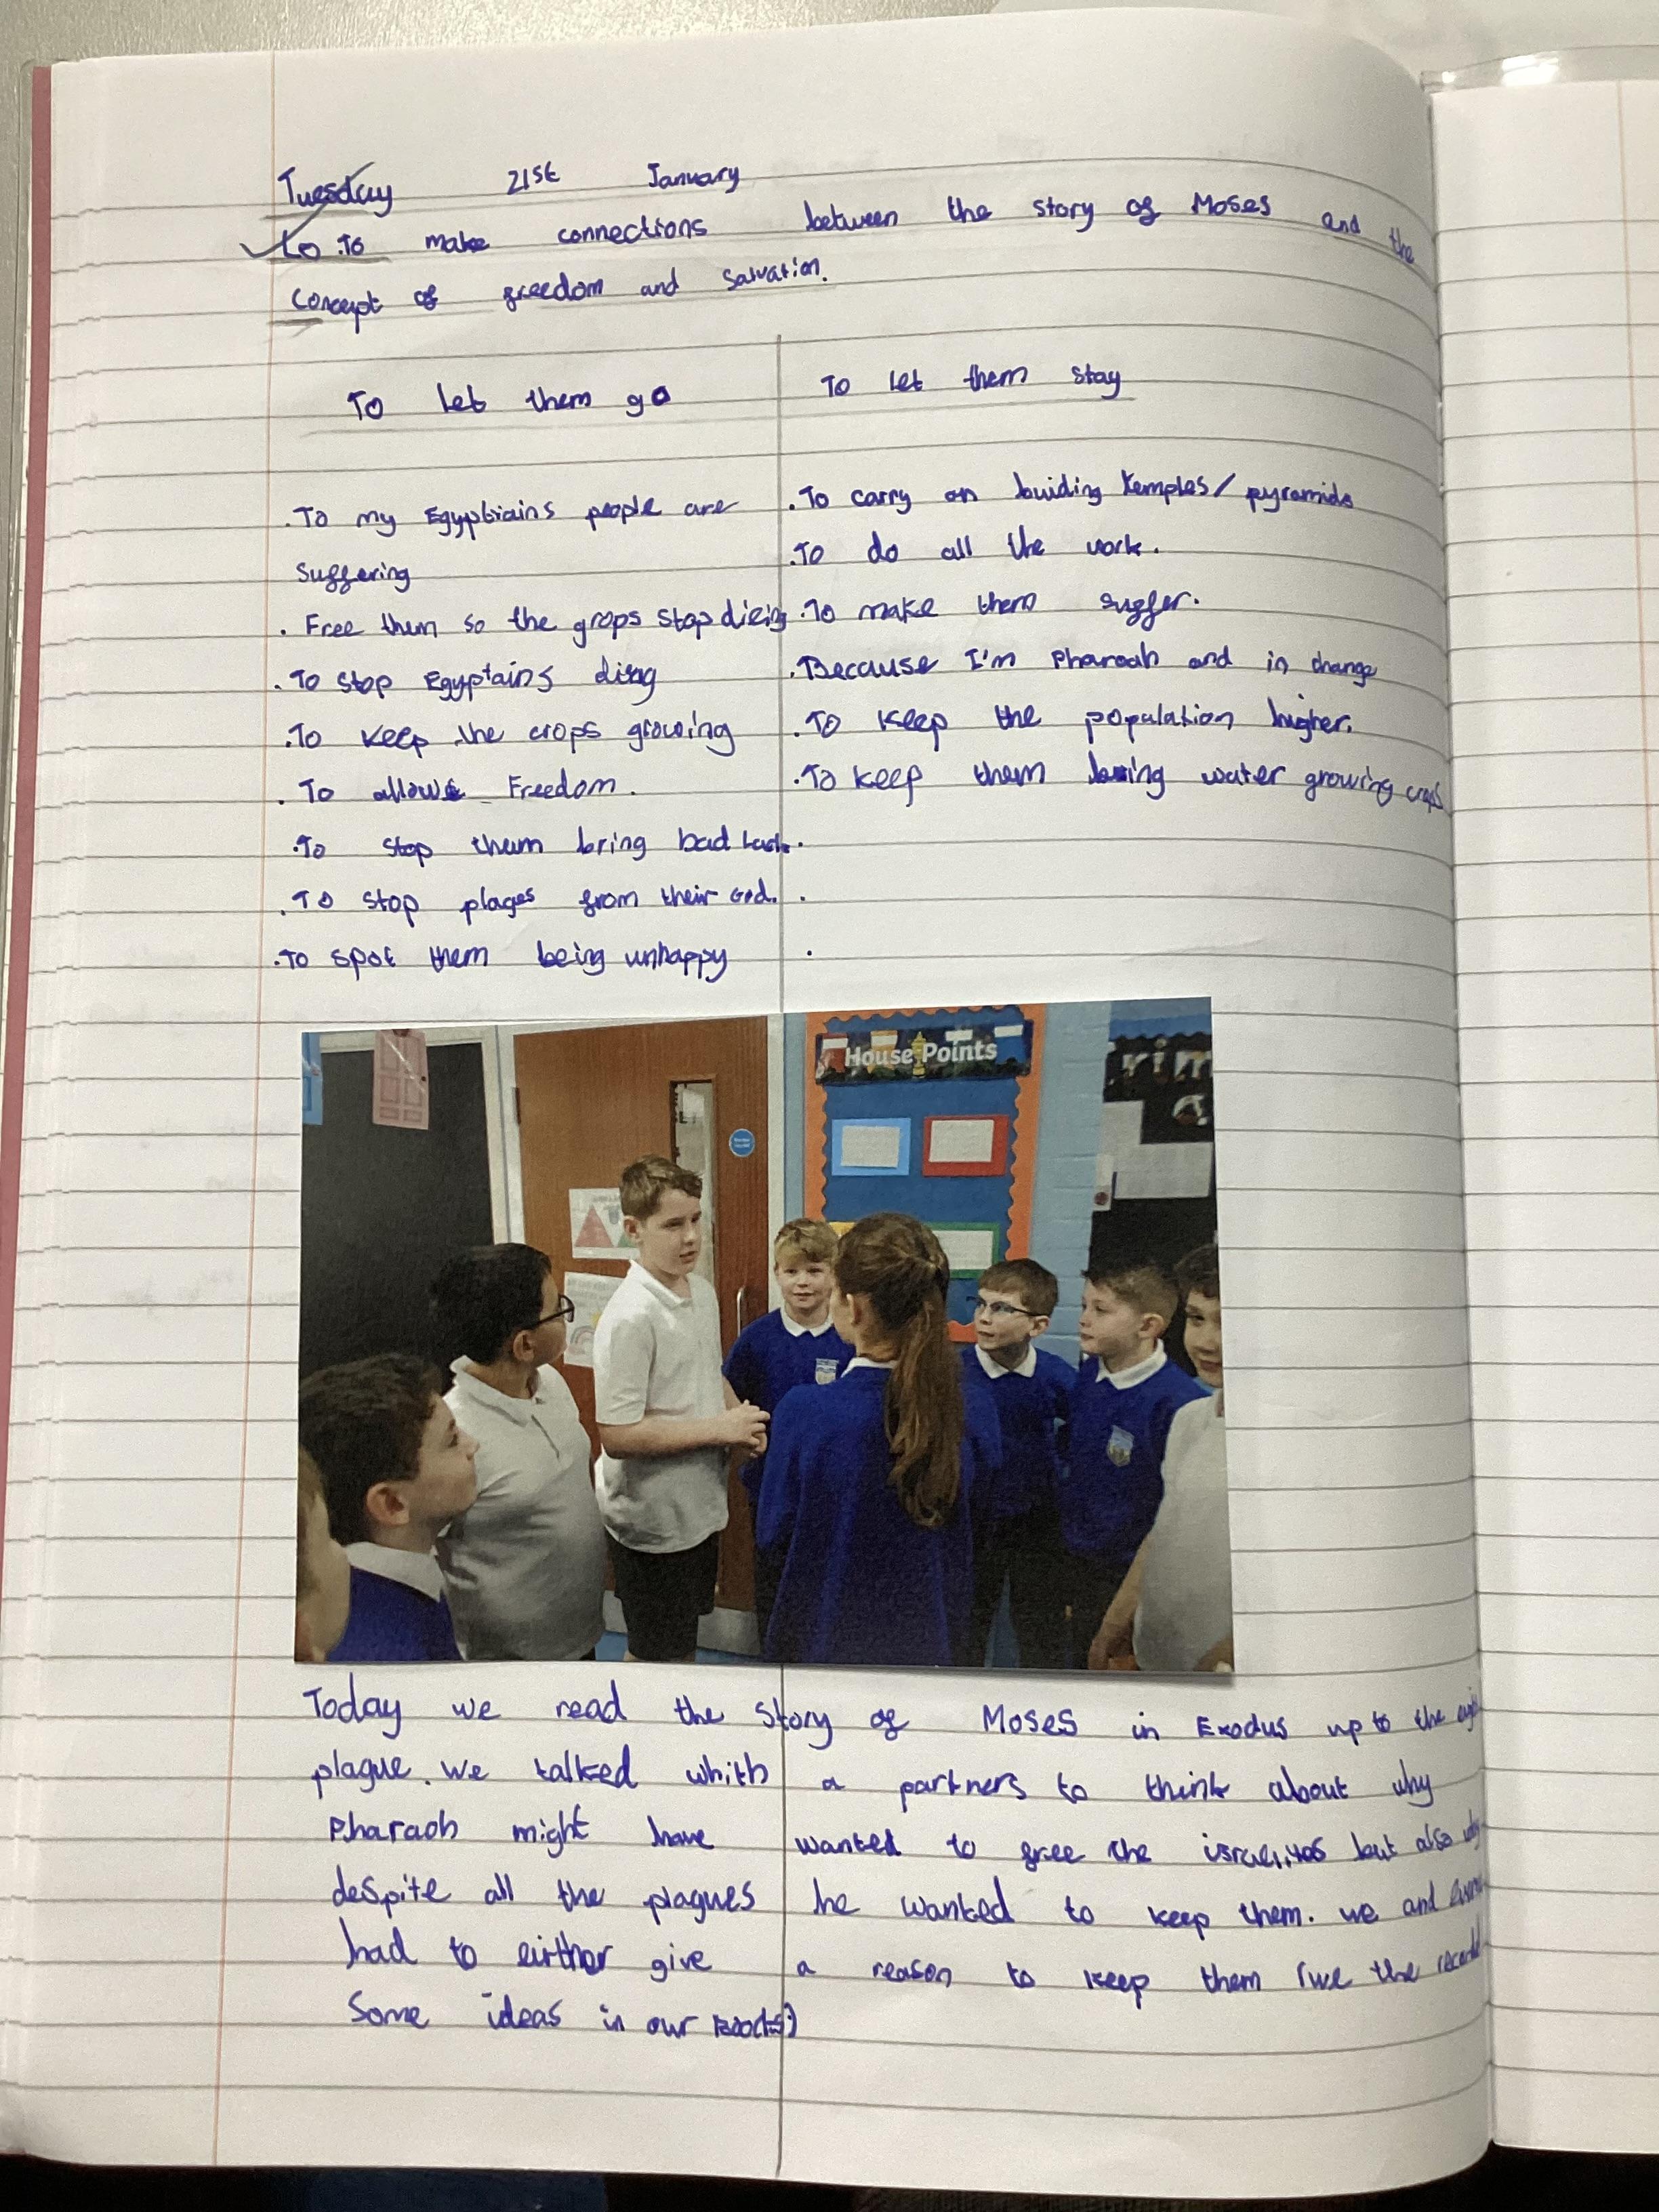 Tuesday 21st January
Lo: To make connections between the story of Moses and the
concept of freedom and salvation.
To let them go
To let them stay
. To my Egyptiains people are
suffering
. Free them so the grops stop dieing
. To stop Egyptains diing
. To keep the crops growing
. To allow Freedom.
. To stop them bring bad luck.
. To stop plages from their God.
. To spot them being unhappy
. To carry on buiding temples/ pyramids
. To do all the work.
. To make them suffer.
. Because I'm Pharoah and in change
. To keep the population higher.
. To keep them water growing crops
.
.
.
House Points
Today we read the story of Moses in Exodus up to the
plague. we talked whith a partners to think about why
Pharaoh might have wanted to free the but also why
despite all the plagues he wanted to keep them. we and
had to eirther give a reason to keep them (we the
Some ideas in our Books)